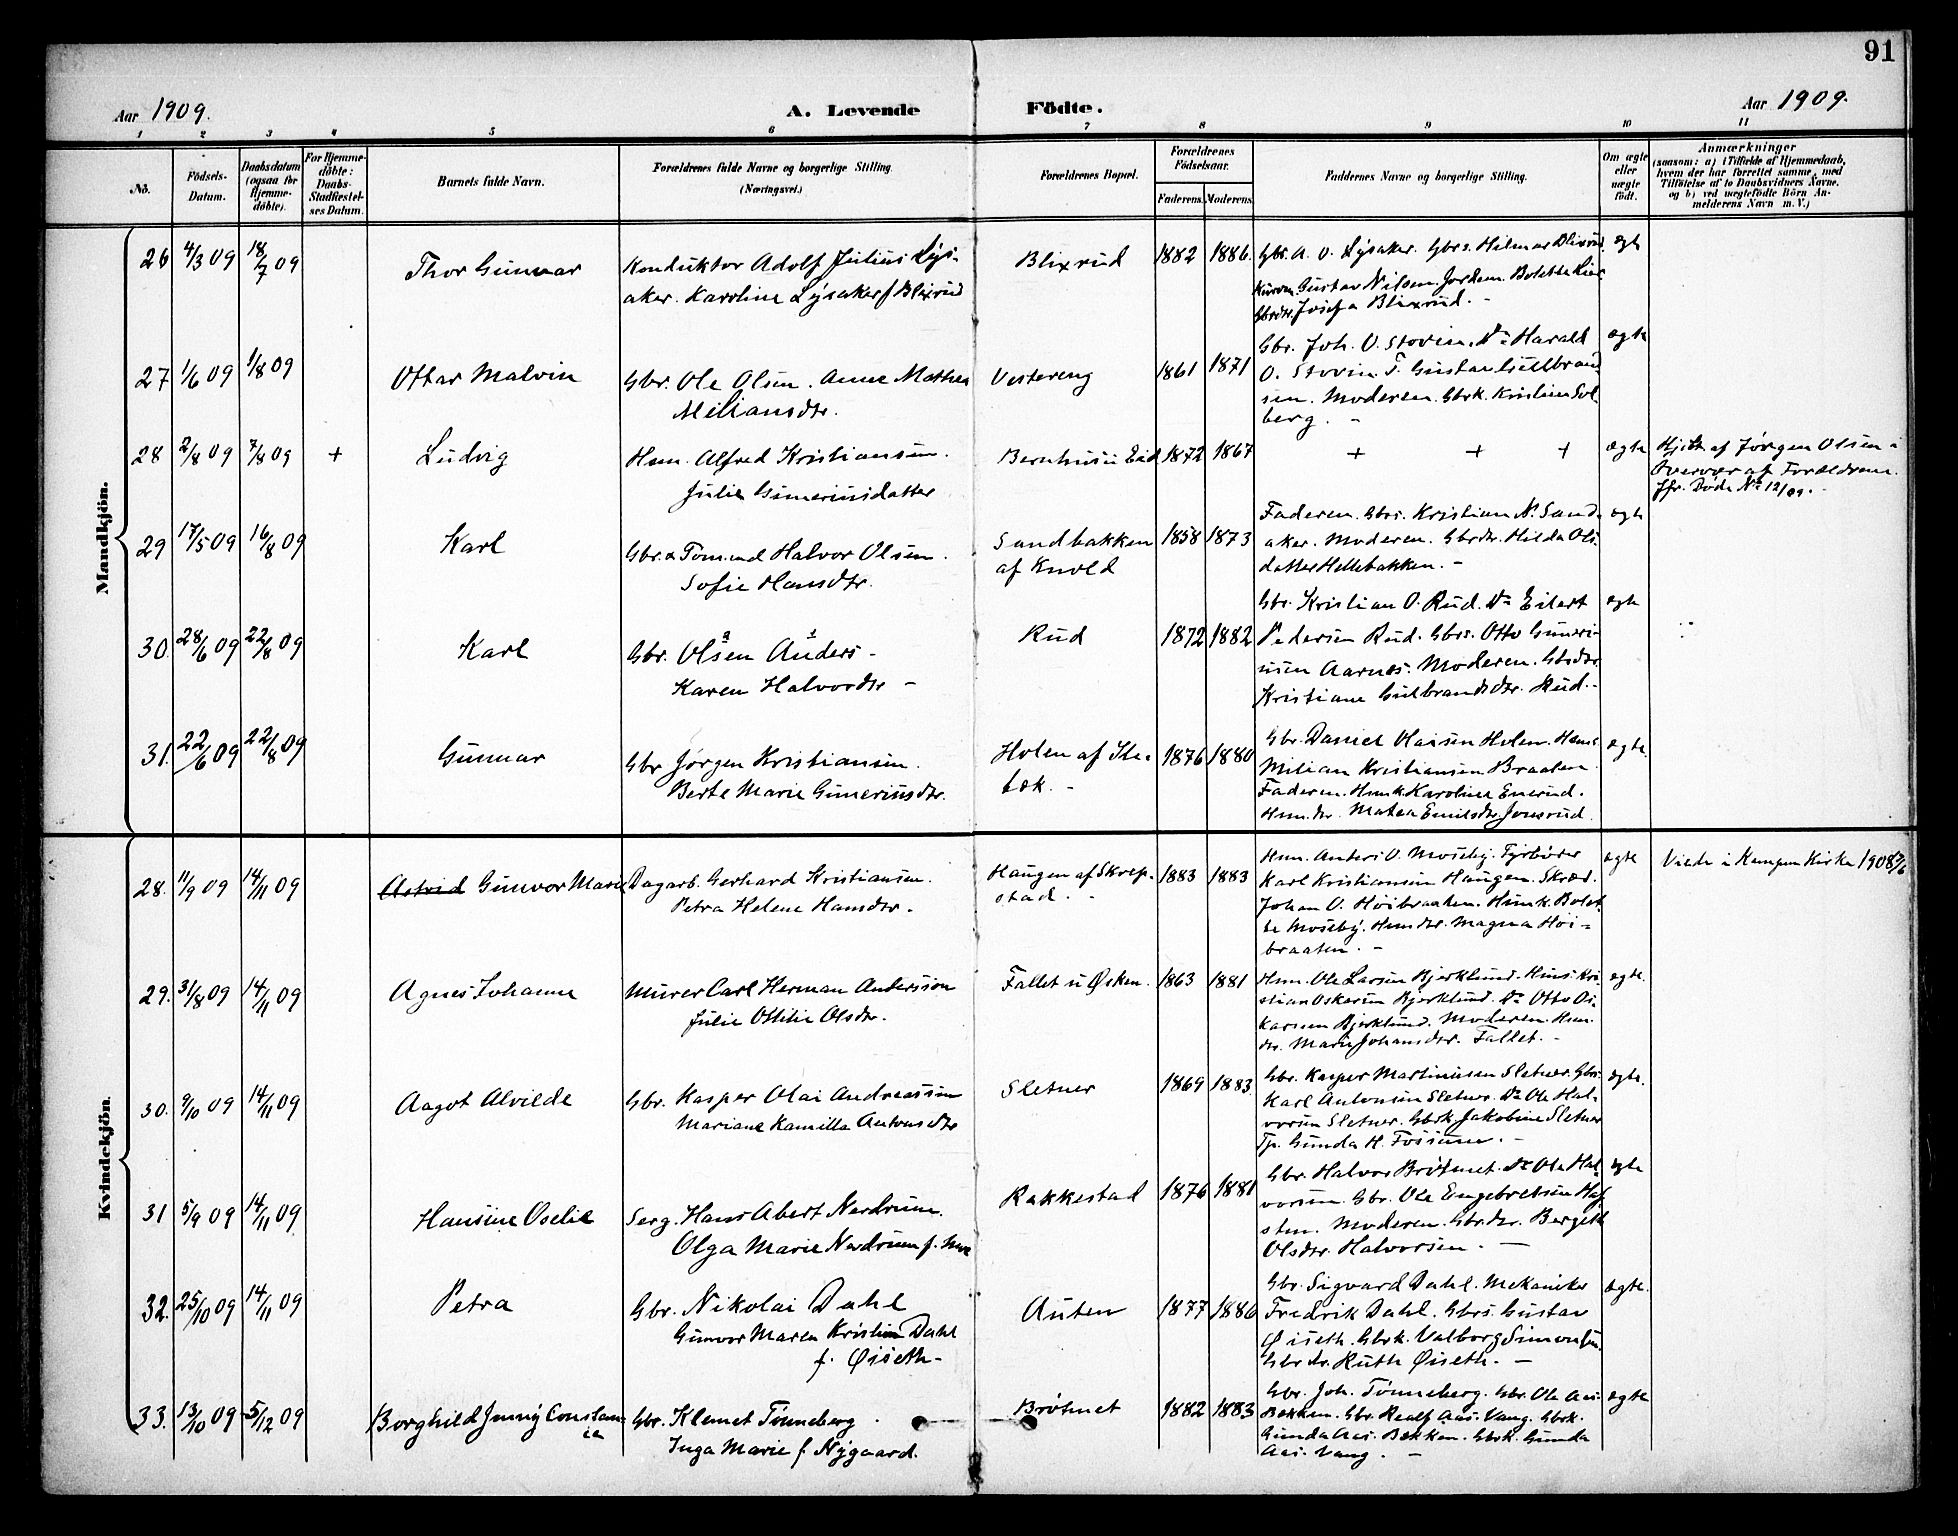 91
Aar 1909. A. Levende Födte. Aar 1909.
1 2 3 4 5 6 7 8 9 10 11
No.
Födsels-Datum.
Daabsdatum (ogsaa for Hjemme-döbte).
For Hjemme-döbte: Daabs-Stadfæstel-ses Datum.
Barnets fulde Navn.
Forældrenes fulde Navne og borgerlige Stilling.
(Næringsvei.)
Forældrenes Bopæl.
Forældrenes Födselsaar.
Faderens. Moderens.
Faddernes Navne og borgerlige Stilling.
Om ægte eller uægte födt.
Anmærkninger
(saasom: a) i Tilfælde af Hjemmedaab,
hvem der har forrettet samme, med
Tilföielse af to Daabsvidners Navne,
og b) ved uægtefödte Börn An-
melderens Navn m. V.)
Mandkjön.
26 4/3 09 18/7 09 Thor Gunvar Konduktor Adolf Julius Lys-
aker. Karoline Lysaker f Blixrud
Blixrud 1882 1886.
Gbr. A. O. Lysaker. Gbrs. Hilmar Blixrud
Gustav Nilsen Jordem. Bolette Lier
Gbrdtr. Josefa Blixrud. -
ægte
27 1/6 09 1/8 09 Ottar Malvin Gbr. Ole Olsen. Anne Mathea
Miliansdtr.
Vestereng 1861 1871
Gbr. Joh. O. Stovin. Do Harald
O. Stovin. T. Gustav Gullbrand
sen. Moderen. Gbrk. Kristine Sol
berg. -
ægte
28 2/8 09 7/8 09 + Ludvig Hsm. Alfred Kristiansen.
Julie Guneriusdatter
Bernhus u Eid 1872 1867
+ + +
ægte
Hjdt. af Jørgen Olsen i
Overvær af Forældrene.
Jfr. Døde No 12/09. -
29 17/5 09 16/8 09 Karl Gbr. & Tømmd Halvor Olsen.
Sofie Hansdtr.
Sandbakken
af Knold
1858 1873
Faderen. Gbrs. Kristian N. Sand-
aker. Moderen. Gbrdtr. Hilda Ols-
datter Hellebakken. -
ægte
30. 28/6 09 22/8 09 Karl Gbr. Olsen Anders -
Karen Halvordtr -
Rud 1872 1882
Gbr. Kristian O. Rud. Do Eilert
Pedersen Rud. Gbrs. Otto Guneri-
usen Aarnes. Moderen. Gbrdtr.
Kristiane Gulbrandsdtr. Rud. -
ægte
31. 22/6 09 22/8 09 Gunnar Gbr Jørgen Kristiansen.
Berte Marie Guneriusdtr.
Holen af Ske-
bæk. -
1876 1880
Gbr. Daniel Olaisen Holen. Hsms
Milian Kristiansen Braaten.
Faderen. Hsmk. Karoline Enerud.
Hsm.dtr. Matea Emilsdtr Jonsrud.
ægte
Kvindekjön.
28. 11/9 09 14/11 09 Astrid Gunvor Marie Dagarb. Gerhard Kristiansen.
Petra Helene Hansdtr.
Haugen af Skrep-
stad. -
1883 1883
Hsm. Anders O. Moseby. Fyrbøder
Karl Kristiansen Haugen. Skræd.
Johan O. Høibraaten. Hsmk. Bolet-
te Moseby. Hsmdtr. Magna Høi-
braaten. -
ægte
Viede i Kampen Kirke 1908
29. 3/8 09 14/11 09 Agnes Johanne Murer Carl Herman Andersson
Julie Ottilie Olsdtr.
Fallet u Øsken. 1863 1881
Hsm. Ole Larsen Bjerklund. Hsms Kri-
stian Oskarsen Bjerklund. Do Otto Os-
karsen Bjerklund. Moderen. Hsm.
dtr. Marie Johansdtr. Fallet. -
ægte.
30. 9/10 09 14/11 09 Aagot Alvilde Gbr. Kasper Olai Andreassen
Mariane Kamilla Antonsdtr
Sletner 1869 1883
Gbr. Kasper Martinusen Sletner. Gbrs.
Karl Antonsen Sletner. Do Ole Hal-
vorsen Sletner. Gbrk Jakobine Sletner
Tp. Gunda H. Fossum. -
ægte.
31 5/9 09 14/11 09 Hansine Oselie Serg. Hans Abert Nordrum.
Olga Marie Nordrum f. Moe
Rakkestad 1876 1881
Gbr. Halvor Brøtmet. Do Ole Hal
vorsen. Gbr. Ole Engebretsen Haf
sten. Moderen. Gbr.dtr. Bergith
Olsdtr. Halvorsen. -
ægte
32. 25/10 09 14/11 09 Petra Gbr. Nikolai Dahl
Gunvor Maren Kristine Dahl
f. Øiseth-
Auten 1877 1886
Gbr. Sigvard Dahl. Mekaniker
Fredrik Dahl. Gbrs. Gustav
Øiseth. Gbrk. Valborg Simonsen.
Gbrdtr. Ruth Øiseth. -
ægte.
33. 13/10 09 5/12 09 Borghild Jenny Constan-
ce
Gbr. Klemet Tønneberg
Inga Marie f. Nygaard.
Brøtmet 1882 1883
Gbr. Joh. Tønneberg. Gbr. Ole Aas-
Bekken. Gbr. Realf Aas-Vang. Gbrk.
Gunda Aas-Bekken. Gbrk. Gunda
Aas-Vang. -
ægte